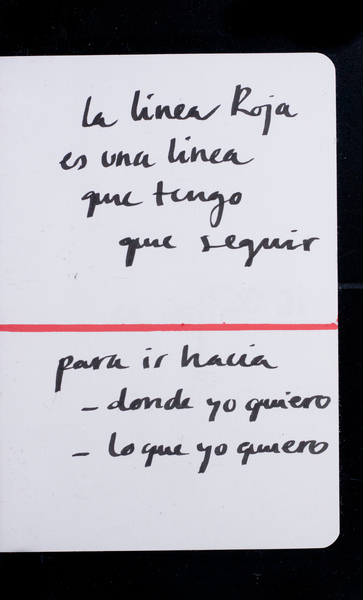 la linea Roja
es una linea
que tengo
que seguir
para ir hacia
- donde yo quiero
- lo que yo quiero